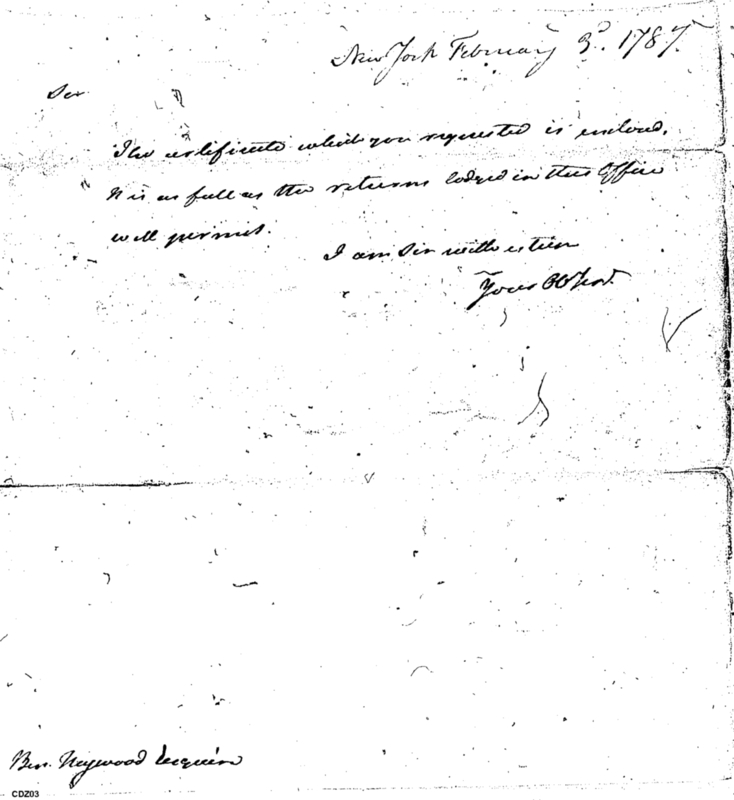 New York February 3d. 1787.
Sir
The certificate which you requested is enclosed.
It is as full as the returns lodged in this Office
will permit.
I am Sir with esteem
Your Obt
Ben. Heywood Esquire
CDZ03